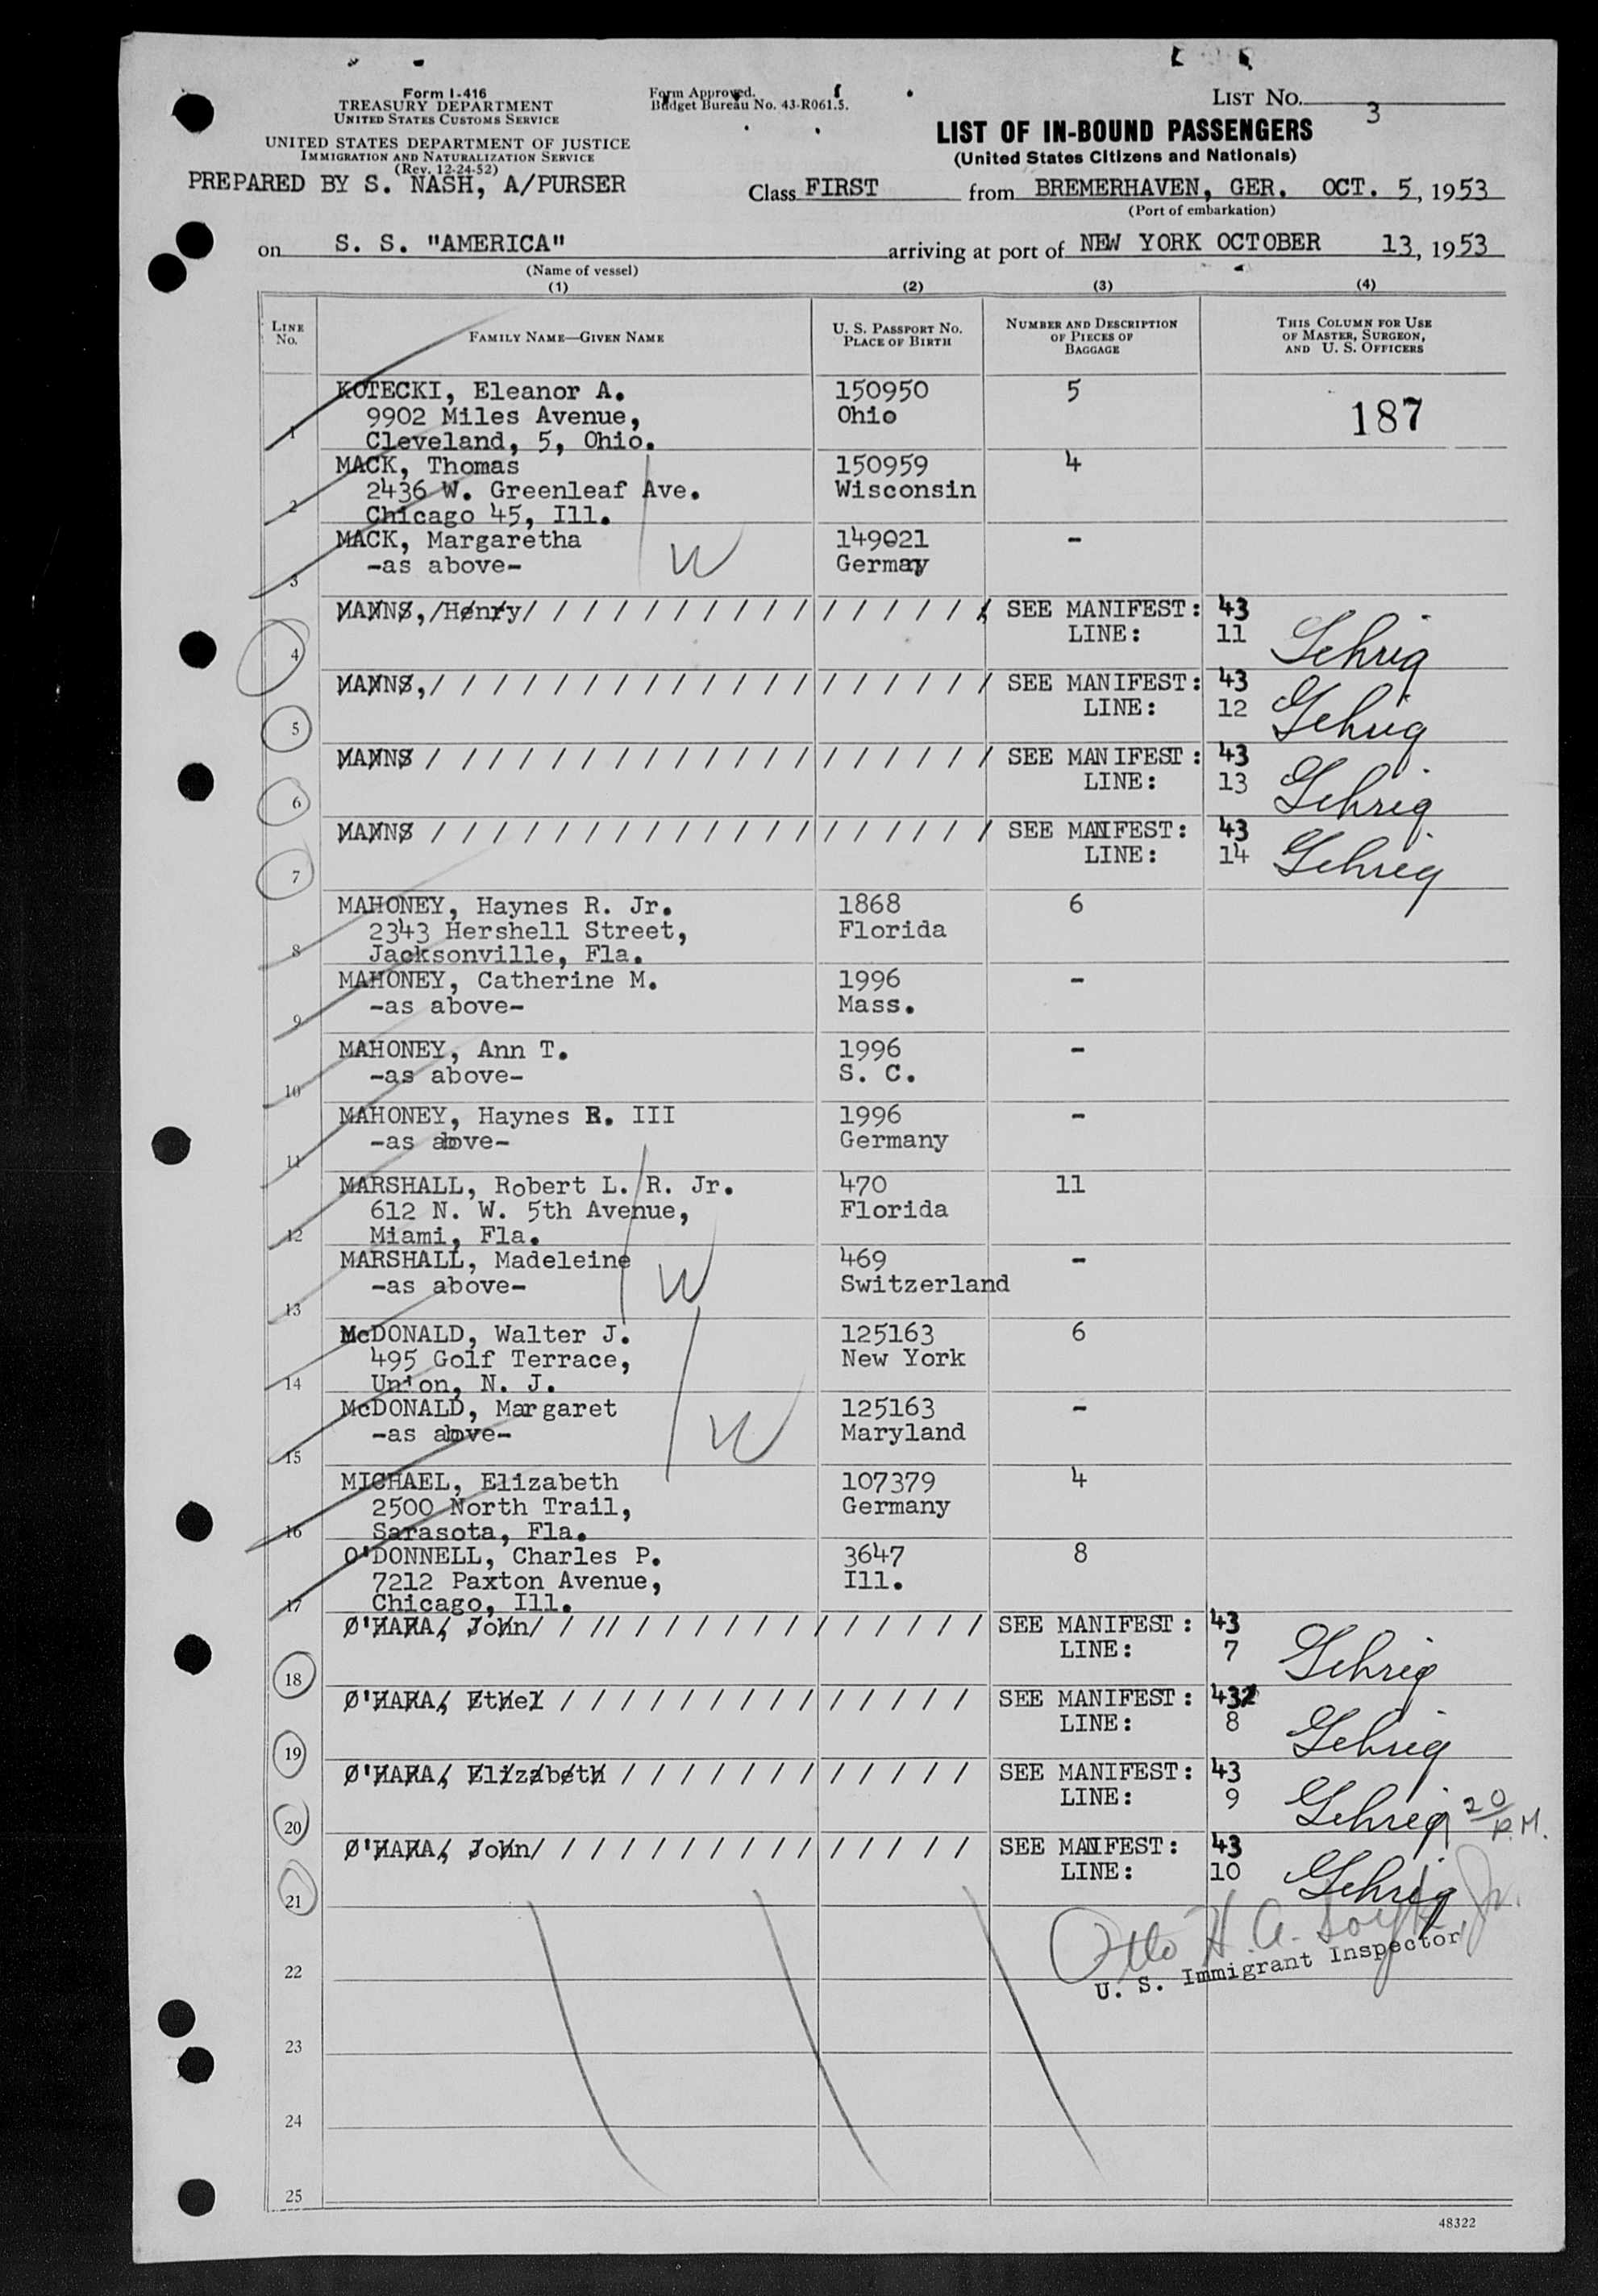 Form I-416
TREASURY DEPARTMENT
UNITED STATES CUSTOMS SERVICE
UNITED STATES DEPARTMENT OF JUSTICE
IMMIGRATION AND NATURALIZATION SERVICE
(Rev. 12-24-52)
PREPARED BY S. NASH, A/PURSER
Form Approved.
Budget Bureau No. 43-R061.5.
LIST NO. 3
LIST OF IN-BOUND PASSENGERS
(United States Citizens and Nationals)
Class FIRST from BREMERHAVEN, GER. OCT. 5, 1953
(Port of embarkation)
on S. S. "AMERICA" arriving at port of NEW YORK OCTOBER 13, 1953
(Name of vessel)
(1) (2) (3) (4)
LINE NO. FAMILY NAME—GIVEN NAME U. S. PASSPORT NO. PLACE OF BIRTH NUMBER AND DESCRIPTION OF PIECES OF BAGGAGE THIS COLUMN FOR USE OF MASTER, SURGEON, AND U. S. OFFICERS
KOTECKI, Eleanor A. 150950 5 187
9902 Miles Avenue, Ohio
1 Cleveland, 5, Ohio.
MACK, Thomas 150959 4
2436 W. Greenleaf Ave. Wisconsin
2 Chicago 45, Ill.
MACK, Margaretha 149021 -
-as above- W Germay
3
MANNS, Henry SEE MANIFEST: 43
4 LINE: 11 Gehrig
MANNS, SEE MANIFEST: 43
5 LINE: 12 Gehrig
MANNS SEE MANIFEST: 43
6 LINE: 13 Gehrig
MANNS SEE MANIFEST: 43
7 LINE: 14 Gehrig
MAHONEY, Haynes R. Jr. 1868 6
2343 Hershell Street, Florida
8 Jacksonville, Fla.
MAHONEY, Catherine M. 1996 -
-as above- Mass.
9
MAHONEY, Ann T. 1996 -
-as above- S. C.
10
MAHONEY, Haynes R. III 1996 -
-as above- Germany
11
MARSHALL, Robert L. R. Jr. 470 11
612 N. W. 5th Avenue, Florida
12 Miami, Fla.
MARSHALL, Madeleine 469 -
-as above- W Switzerland
13
McDONALD, Walter J. 125163 6
495 Golf Terrace, New York
14 Union, N. J.
McDONALD, Margaret 125163 -
-as above- W Maryland
15
MICHAEL, Elizabeth 107379 4
2500 North Trail, Germany
16 Sarasota, Fla.
O'DONNELL, Charles P. 3647 8
7212 Paxton Avenue, Ill.
17 Chicago, Ill.
O'HARA, John SEE MANIFEST: 43
18 LINE: 7 Gehrig
O'HARA, Ethel SEE MANIFEST: 43
19 LINE: 8 Gehrig
O'HARA, Elizabeth SEE MANIFEST: 43
20 LINE: 9 Gehrig 20 P.M.
O'HARA, John SEE MANIFEST: 43
21 LINE: 10 Gehrig
Otto H. A. Jr.
U. S. Immigrant Inspector
22
23
24
25
48322